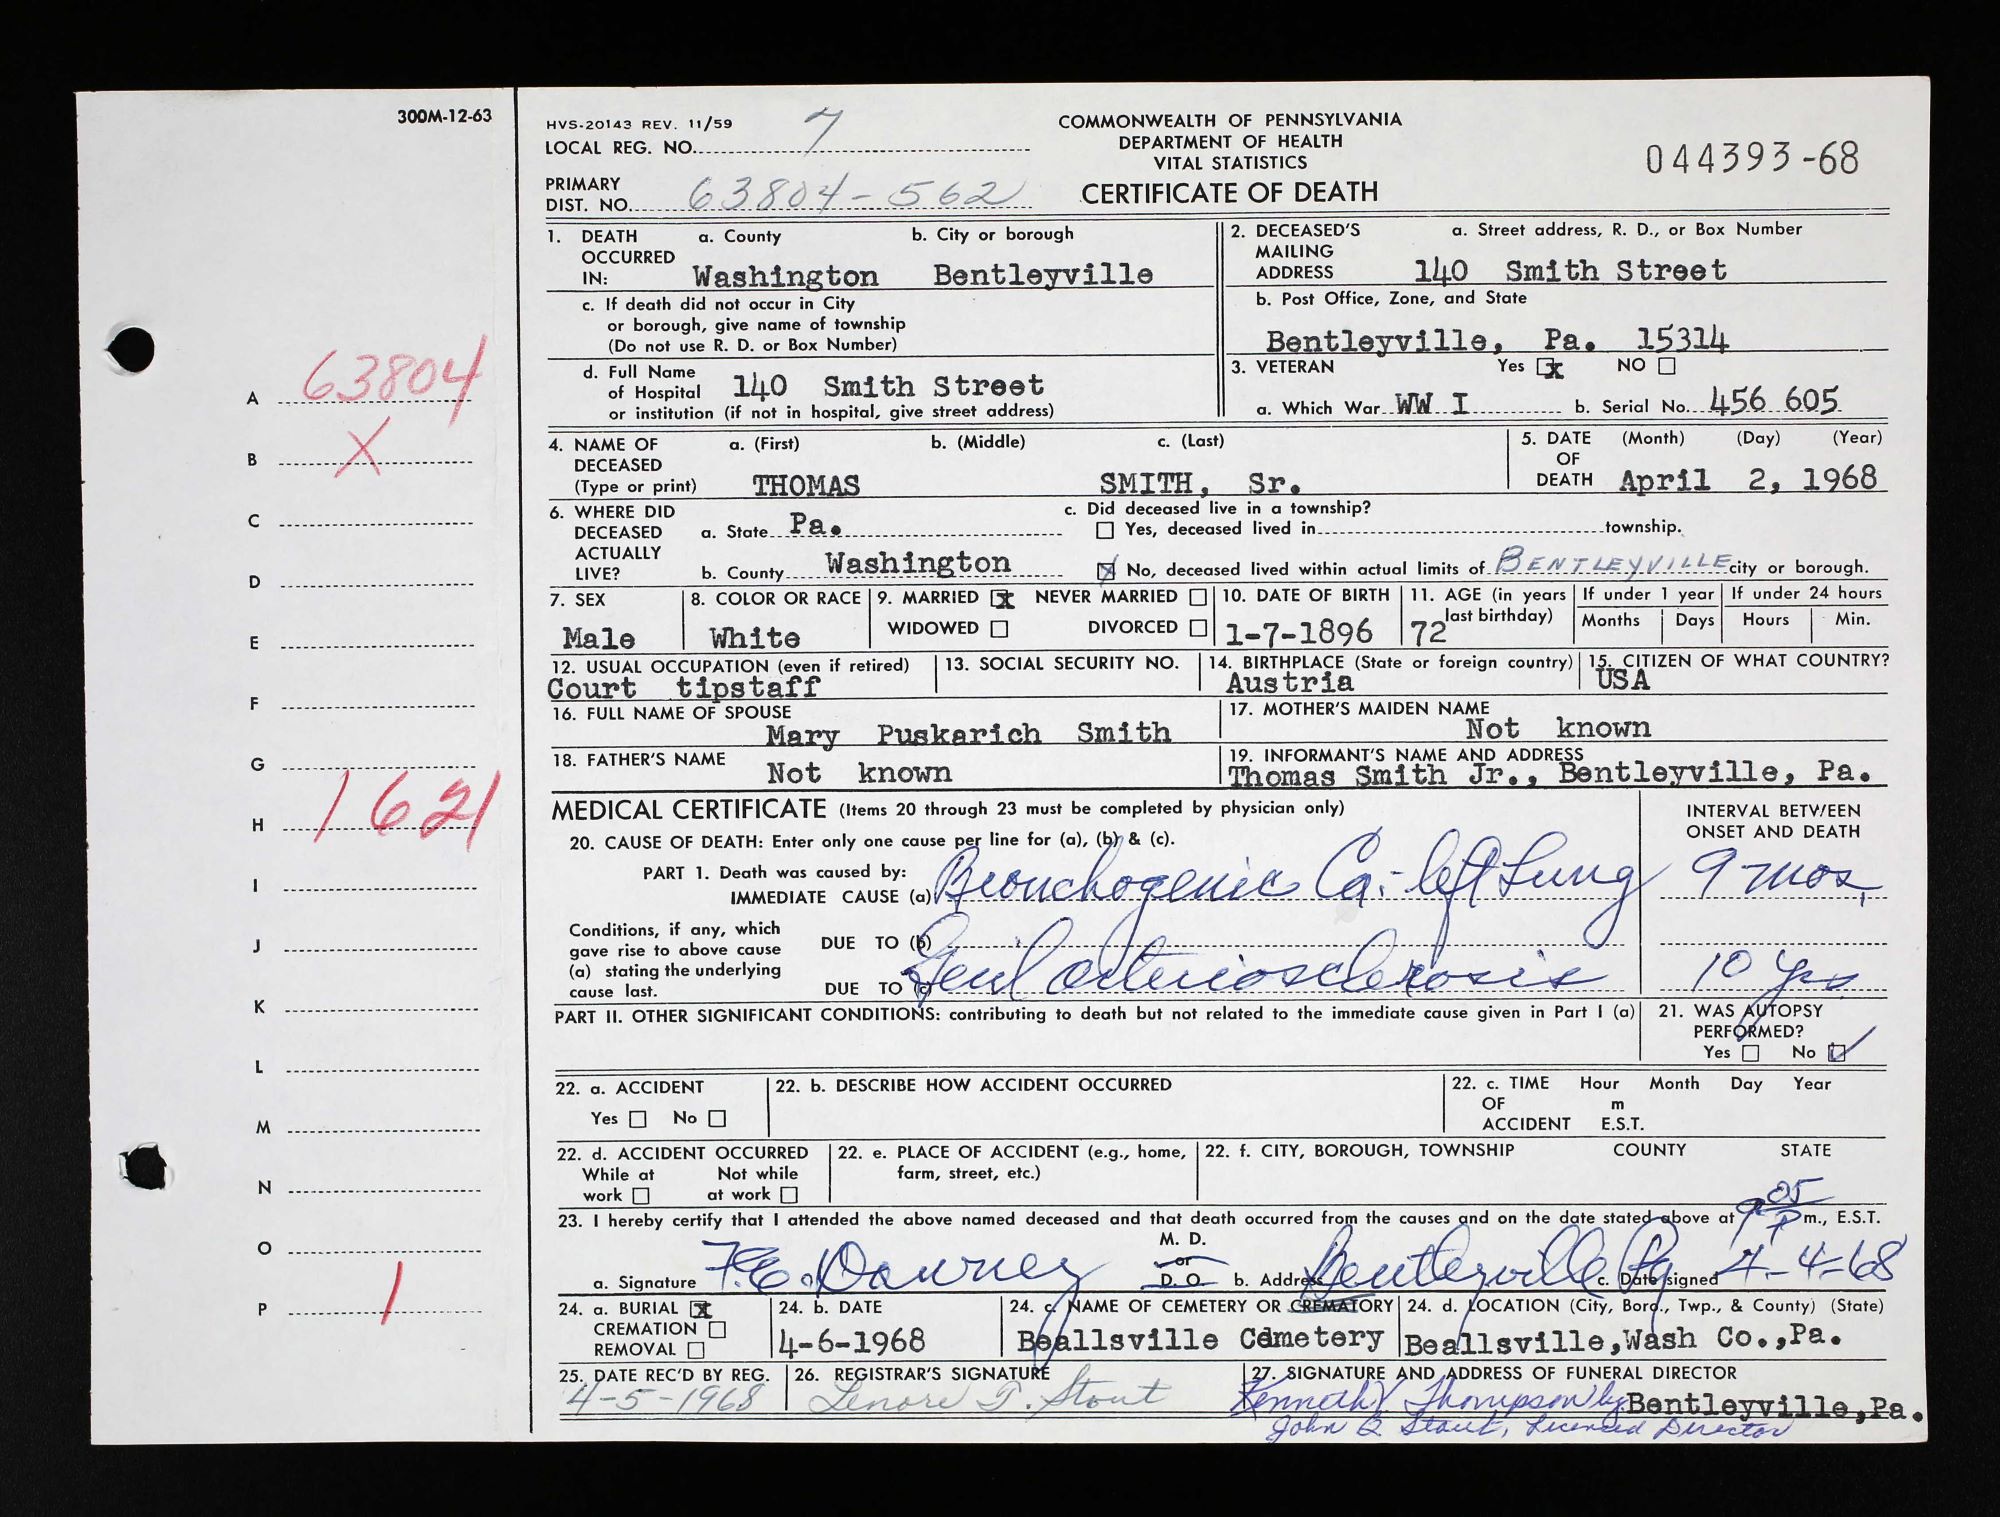 300M-12-63
HVS-20143 REV. 11/59
LOCAL REG. NO. 7
PRIMARY DIST. NO. 63804-562
COMMONWEALTH OF PENNSYLVANIA
DEPARTMENT OF HEALTH
VITAL STATISTICS
CERTIFICATE OF DEATH
044393-68
A 63804
B X
C
D
E
F
G
H 1621
I
J
K
L
M
N
O
P 1
1. DEATH OCCURRED IN: a. County b. City or borough
Washington Bentleyville
c. If death did not occur in City
or borough, give name of township
(Do not use R. D. or Box Number)
d. Full Name of Hospital 140 Smith Street
or institution (if not in hospital, give street address)
2. DECEASED'S MAILING ADDRESS a. Street address, R. D., or Box Number
140 Smith Street
b. Post Office, Zone, and State
Bentleyville, Pa. 15314
3. VETERAN Yes x NO
a. Which War WW I b. Serial No. 456 605
4. NAME OF DECEASED (Type or print) a. (First) b. (Middle) c. (Last)
THOMAS SMITH, Sr.
5. DATE OF DEATH (Month) (Day) (Year)
April 2, 1968
6. WHERE DID DECEASED ACTUALLY LIVE? a. State Pa.
b. County Washington
c. Did deceased live in a township?
Yes, deceased lived in township.
x No, deceased lived within actual limits of BENTLEYVILLE city or borough.
7. SEX
Male
8. COLOR OR RACE
White
9. MARRIED x NEVER MARRIED
WIDOWED DIVORCED
10. DATE OF BIRTH
1-7-1896
11. AGE (in years last birthday)
72
If under 1 year
Months Days
If under 24 hours
Hours Min.
12. USUAL OCCUPATION (even if retired)
Court tipstaff
13. SOCIAL SECURITY NO.
14. BIRTHPLACE (State or foreign country)
Austria
15. CITIZEN OF WHAT COUNTRY?
USA
16. FULL NAME OF SPOUSE
Mary Puskarich Smith
17. MOTHER'S MAIDEN NAME
Not known
18. FATHER'S NAME
Not known
19. INFORMANT'S NAME AND ADDRESS
Thomas Smith Jr., Bentleyville, Pa.
MEDICAL CERTIFICATE (Items 20 through 23 must be completed by physician only)
INTERVAL BETWEEN
ONSET AND DEATH
20. CAUSE OF DEATH: Enter only one cause per line for (a), (b) & (c).
PART 1. Death was caused by:
IMMEDIATE CAUSE (a) Bronchogenic Ca.- left Lung 9 mos.
Conditions, if any, which
gave rise to above cause
(a) stating the underlying
cause last.
DUE TO (b)
DUE TO (c) Genl arteriosclerosis 10 yrs
PART II. OTHER SIGNIFICANT CONDITIONS: contributing to death but not related to the immediate cause given in Part I (a)
21. WAS AUTOPSY
PERFORMED?
Yes No ✓
22. a. ACCIDENT
Yes No
22. b. DESCRIBE HOW ACCIDENT OCCURRED
22. c. TIME OF ACCIDENT Hour Month Day Year
m
E.S.T.
22. d. ACCIDENT OCCURRED
While at work Not while at work
22. e. PLACE OF ACCIDENT (e.g., home,
farm, street, etc.)
22. f. CITY, BOROUGH, TOWNSHIP COUNTY STATE
23. I hereby certify that I attended the above named deceased and that death occurred from the causes and on the date stated above at 9:05 P m., E.S.T.
a. Signature F.E. Downey M. D. or D. O. b. Address Bentleyville Pa c. Date signed 4-4-68
24. a. BURIAL x
CREMATION
REMOVAL
24. b. DATE
4-6-1968
24. c. NAME OF CEMETERY OR CREMATORY
Beallsville Cemetery
24. d. LOCATION (City, Boro., Twp., & County) (State)
Beallsville,Wash Co.,Pa.
25. DATE REC'D BY REG.
4-5-1968
26. REGISTRAR'S SIGNATURE
Lenore P. Stout
27. SIGNATURE AND ADDRESS OF FUNERAL DIRECTOR
Kenneth V. Thompson by Bentleyville,Pa.
John Q Stout, Licensed Director